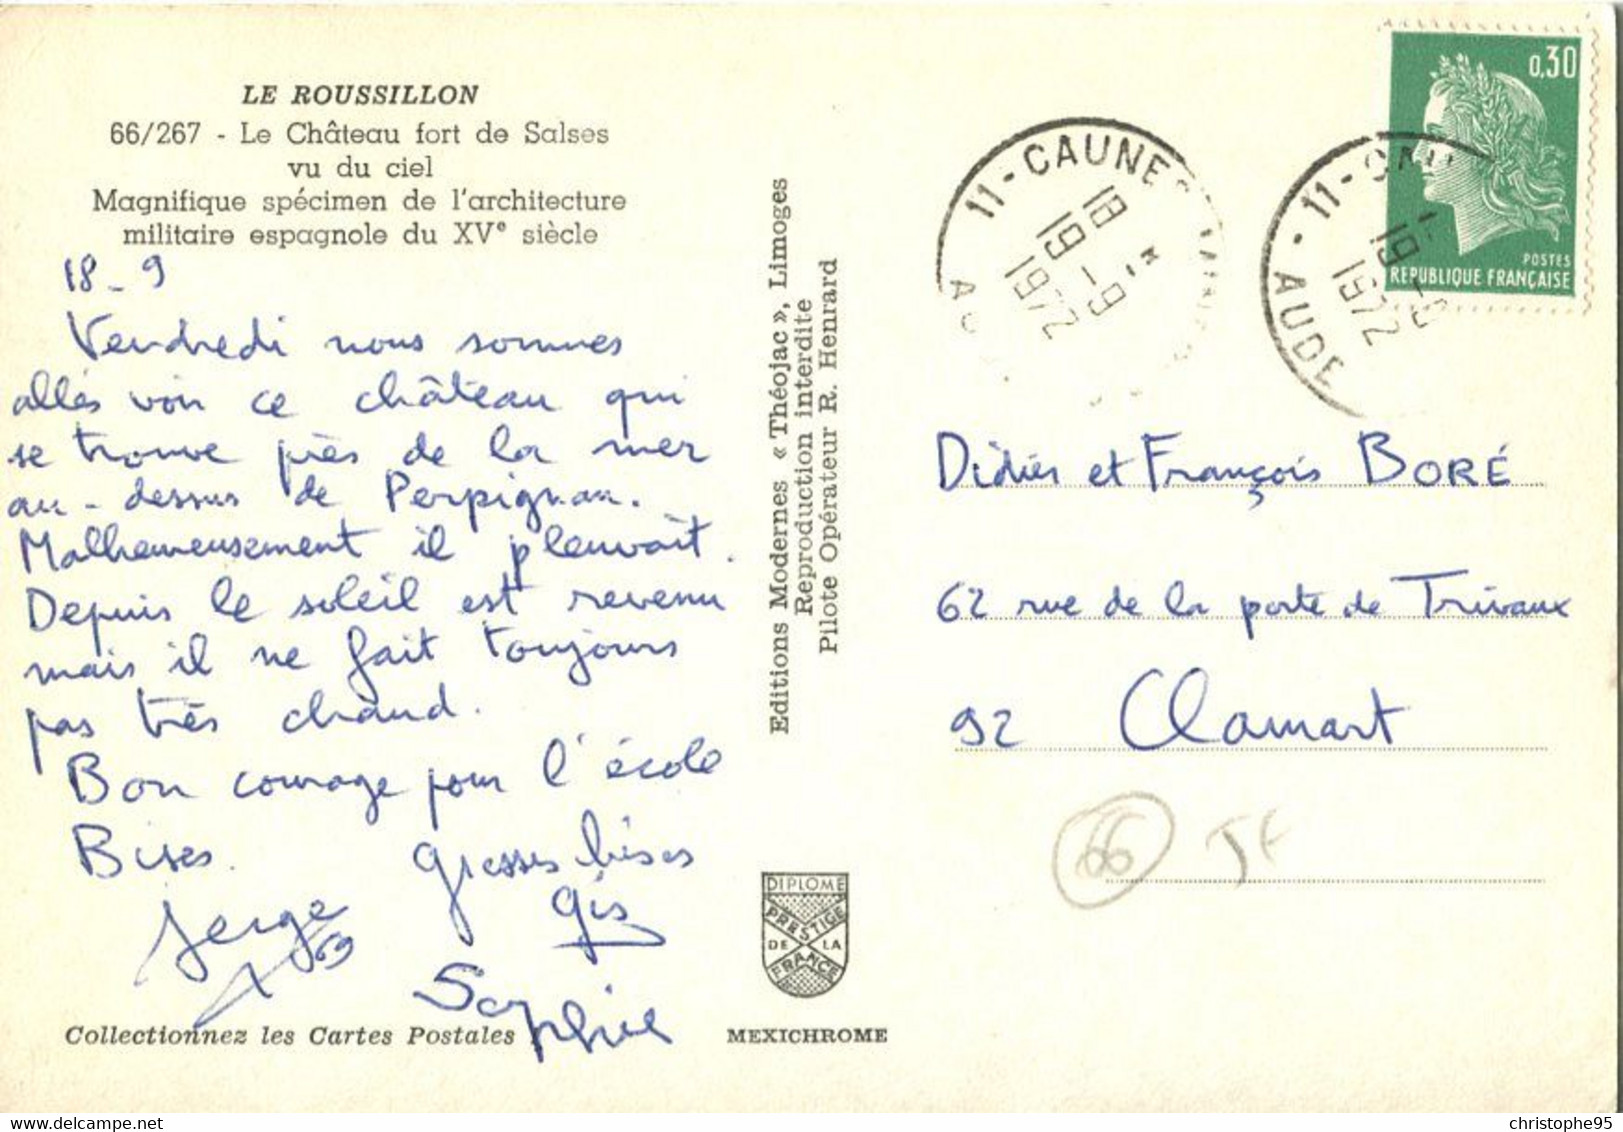 LE ROUSSILLON
66/267 - Le Château fort de Salses
vu du ciel
Magnifique spécimen de l'architecture
militaire espagnole du XVe siècle
18 - 9
Vendredi nous sommes
allés voir ce château qui
se trouve près de la mer
au-dessus de Perpignan.
Malheureusement il pleuvait.
Depuis le soleil est revenu
mais il ne fait toujours
pas très chaud.
Bon courage pour l'école
Bises. Grosses bises
Serge Gis
Sophie
Collectionnez les Cartes Postales
Editions Modernes « Théojac », Limoges
Reproduction interdite
Pilote Opérateur R. Henrard
DIPLOME
PRESTIGE
DE LA
FRANCE
MEXICHROME
0,30
POSTES
REPUBLIQUE FRANÇAISE
11 - CAUNES
18
19 - 9
1972
11 - CAU
19 - 9
1972
AUDE
Didier et François BORÉ
62 rue de la porte de Trivaux
92 Clamart
66
christophe95